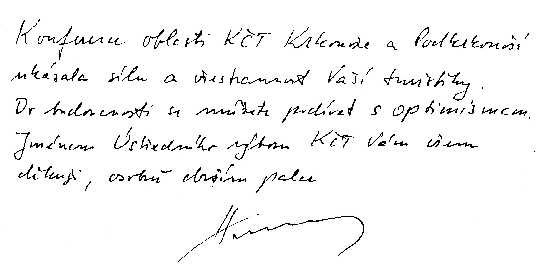 Konference oblasti KČT Krkonoše a Podkrkonoší
ukázala sílu a všestrannost Vaší turistiky.
Do budoucnosti se můžete podívat s optimismem.
Jménem Ústředního výboru KČT Vám všem
děkuji, osobně držím palce